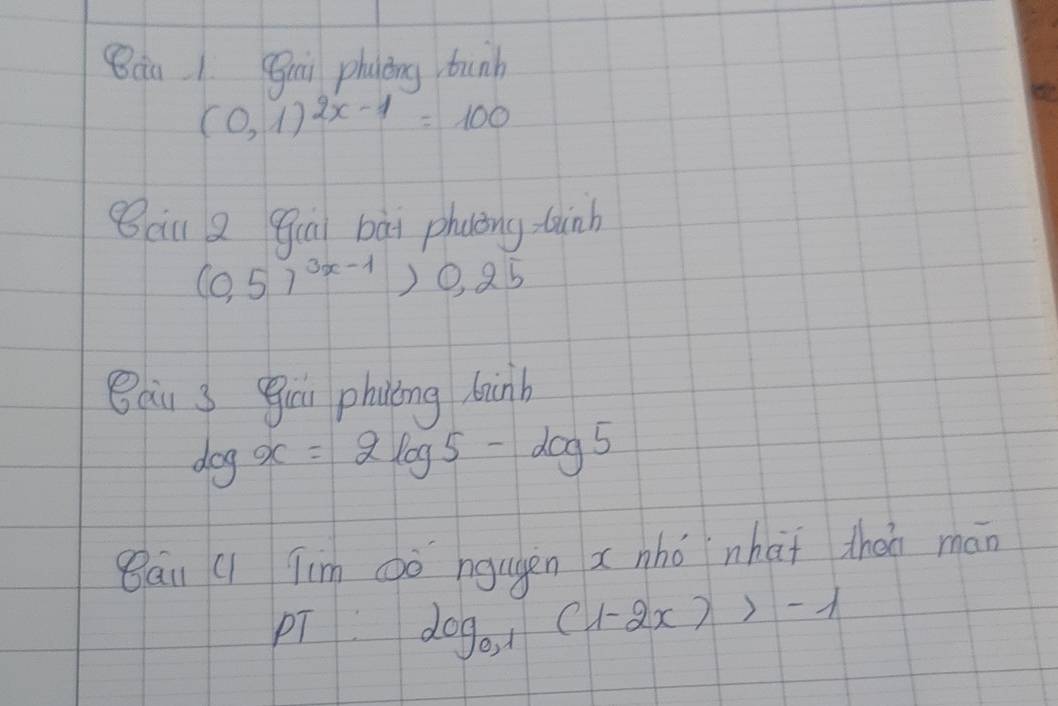 Câu 1. Giải phương trình
(0,1)^{2x-1} = 100
Câu 2 Giải bất phương trình
(0,5)^{3x-1} > 0,25
Câu 3 Giải phương trình
log x = 2 log 5 - log 5
Câu 4 Tìm số nguyên x nhỏ nhất thoả mãn
PT : log_{0,1} (1-2x) > -1